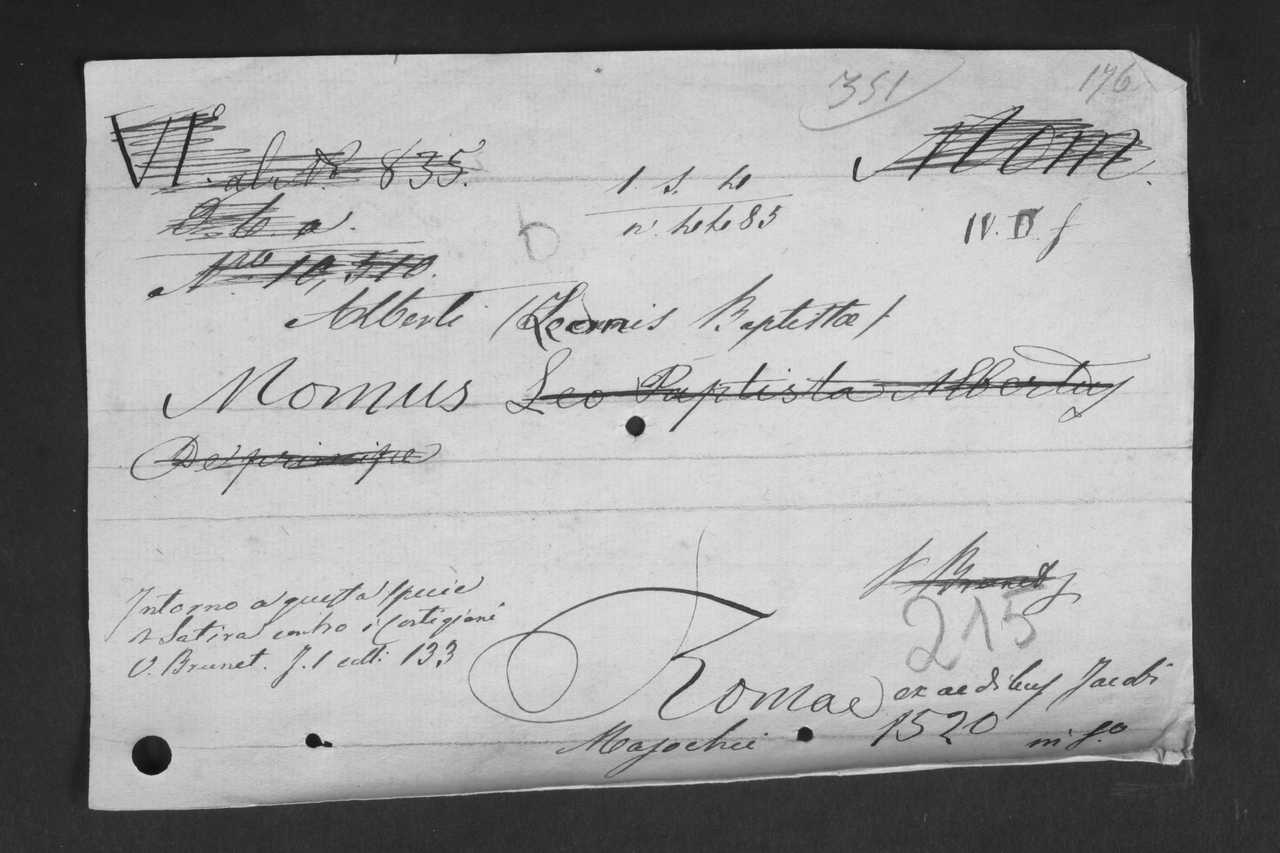 351 176
VI° Mom.
al N° 835.
1. s.
n. 85 IV. D f
b
N.ro 10,510.
Alberti (Leonis Baptistæ)
Momus Leo Baptista Albertus
De principe
V Brunet
Intorno a questa specie
di Satira contro i Cortigiani
V. Brunet. T. 1 edit. 133
215
Romae ex aedibus Jacobi
Mazochii 1520 in f.o